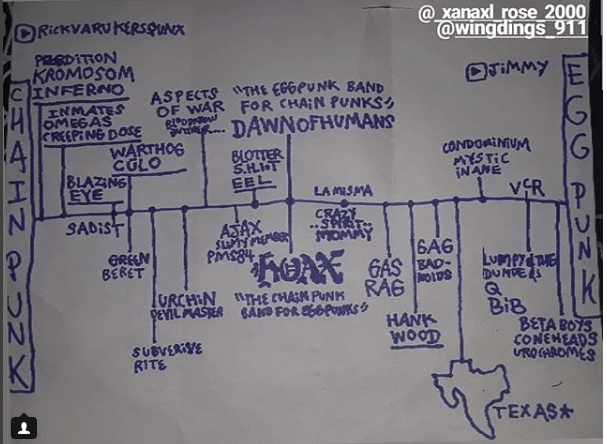 @_xanaxl_rose_2000
@wingdings_911
RICKVARUKERSPUNX
JIMMY
CHAIN PUNK
EGG PUNK
PERDITION
KROMOSOM
INFERNO
INMATES
OMEGAS
CREEPING DOSE
BLAZING
EYE
SADIST
WARTHOG
CULO
GREEN
BERET
SUBVERSIVE
RITE
URCHIN
DEVIL MASTER
ASPECTS
OF WAR
BLOTTER
S.H.I.T
EEL
AJAX
SLIMY MEMBER
PMS84
"THE EGGPUNK BAND
FOR CHAIN PUNKS"
DAWNOFHUMANS
HOAX
"THE CHAIN PUNK
BAND FOR EGGPUNKS"
LA MISMA
CRAZY
SPIRIT
MOMMY
GAS
RAG
HANK
WOOD
GAG
BAD-
NOIDS
CONDOMINIUM
MYSTIC
INANE
TEXAS*
VCR
LUMPY & THE
DUMPERS
Q
BIB
BETA BOYS
CONEHEADS
UROCHROMES